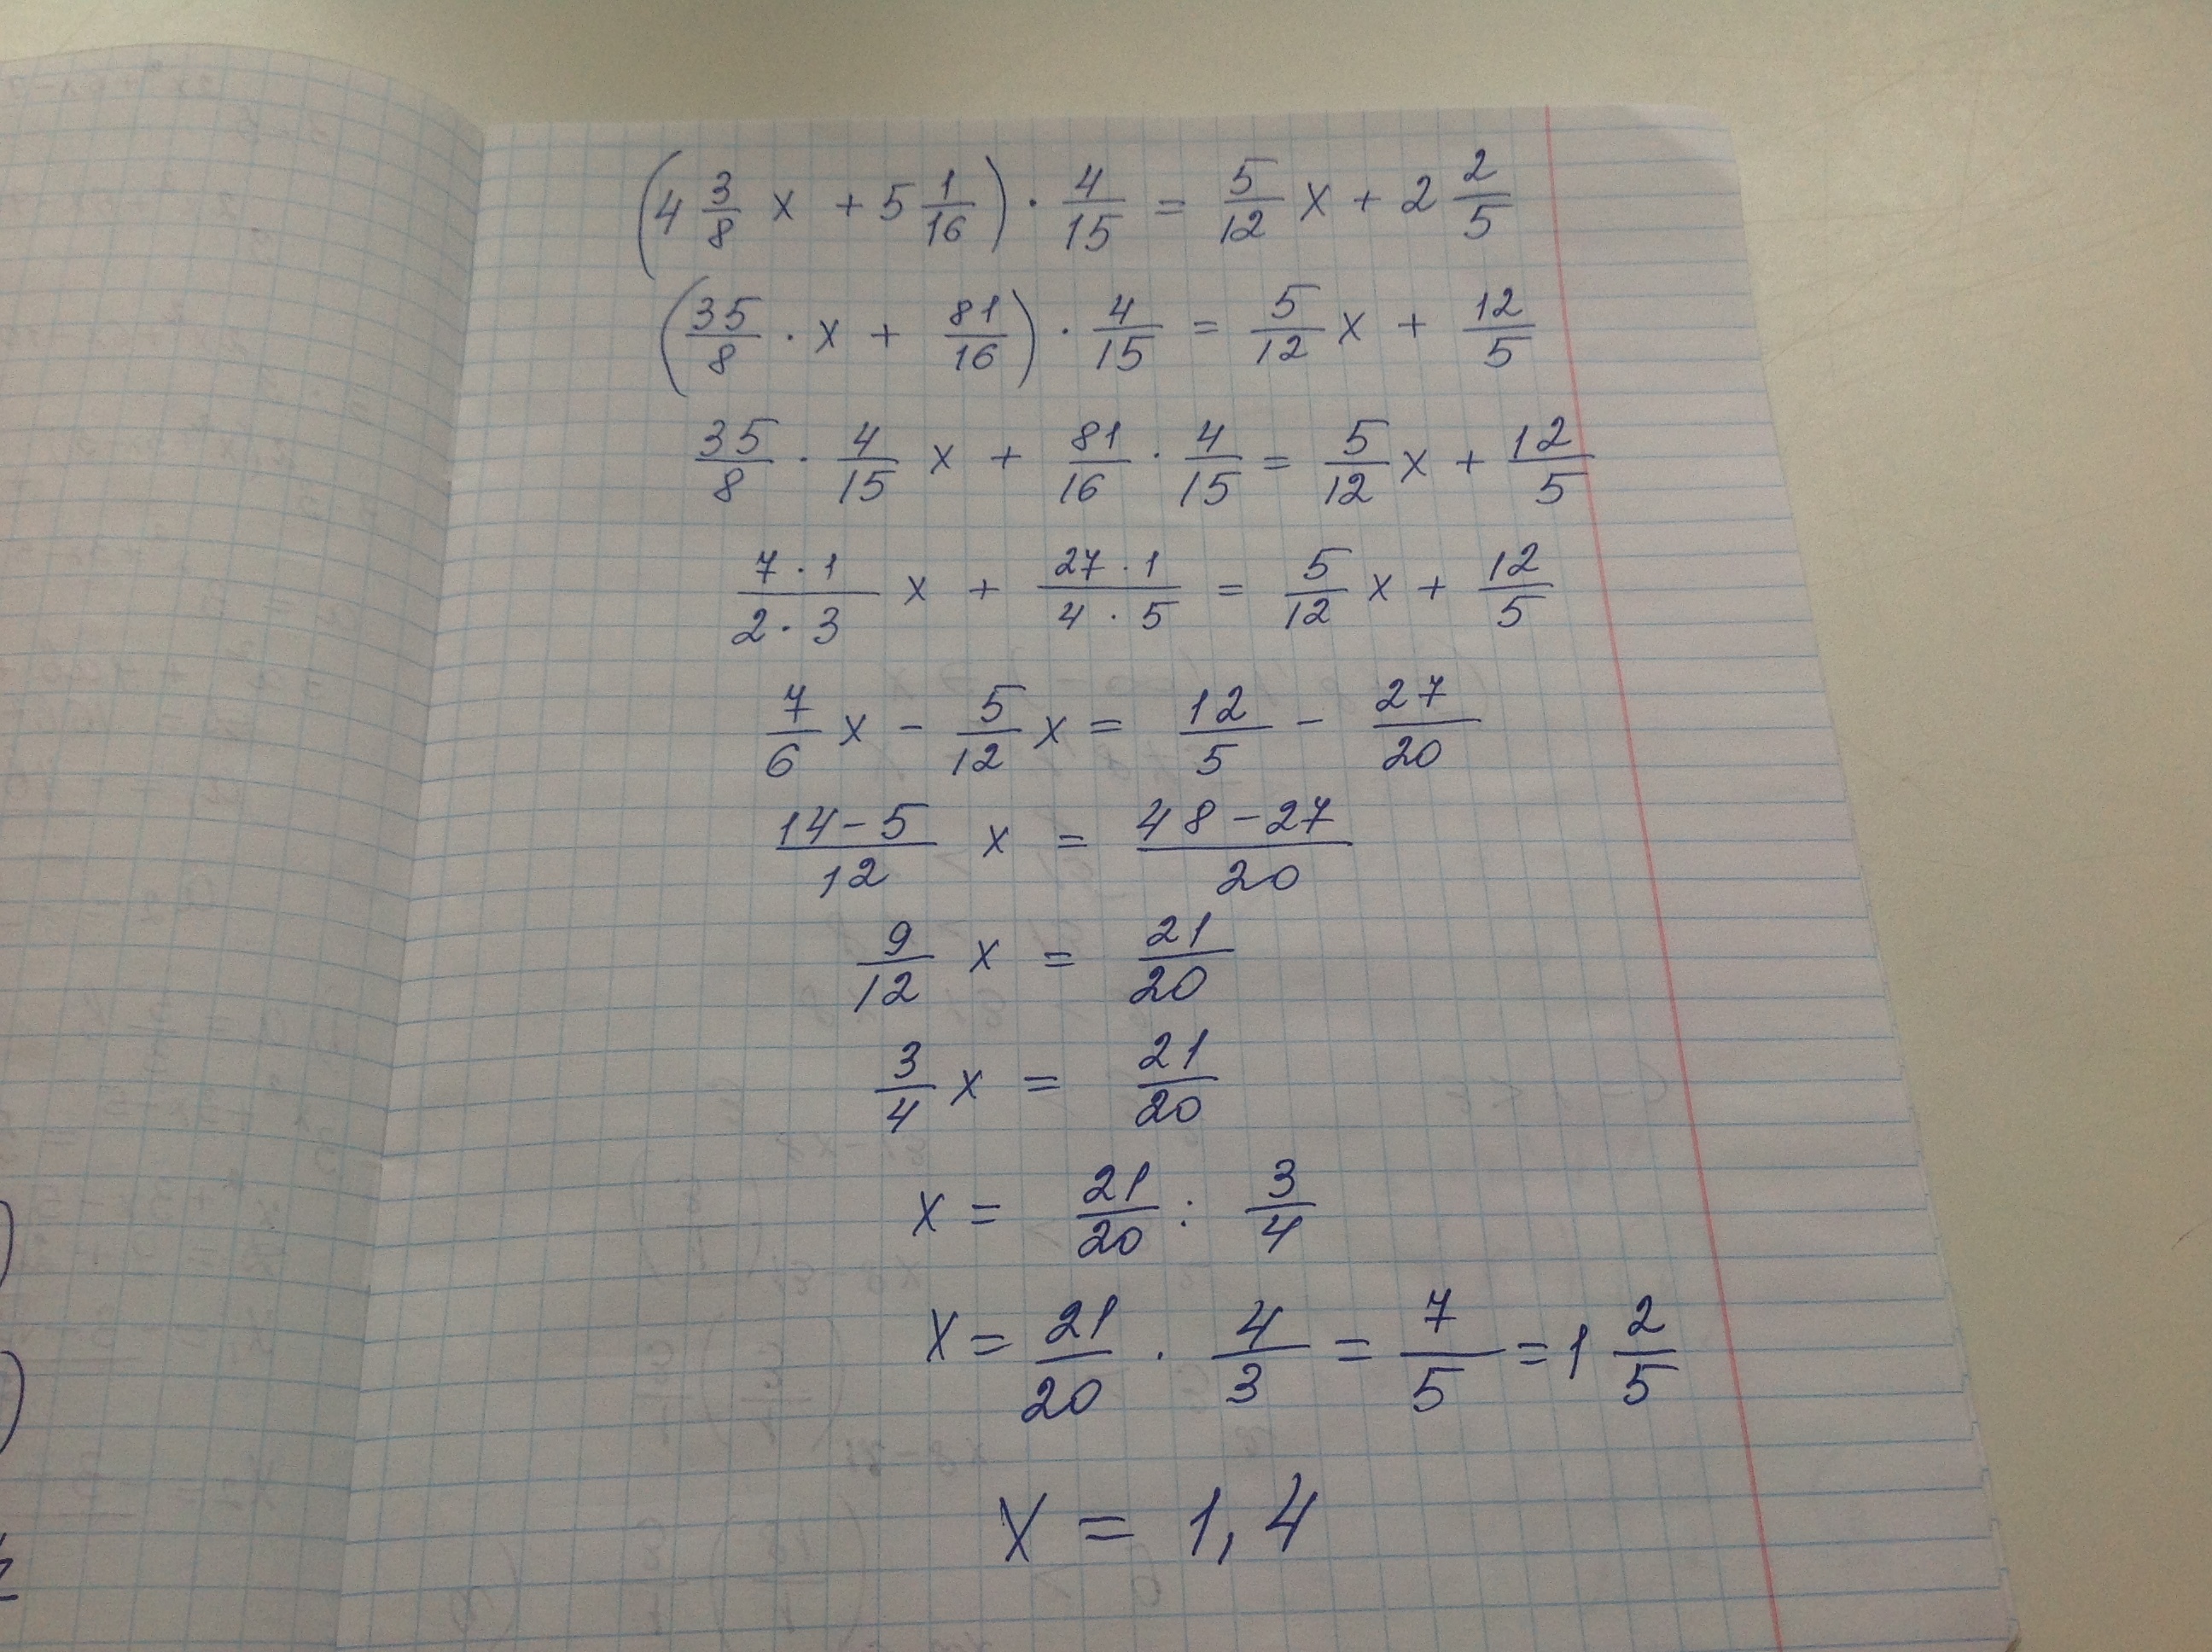 (4 3/8 x + 5 1/16) · 4/15 = 5/12 x + 2 2/5
(35/8 · x + 81/16) · 4/15 = 5/12 x + 12/5
35/8 · 4/15 x + 81/16 · 4/15 = 5/12 x + 12/5
7 · 1/2 · 3 x + 27 · 1/4 · 5 = 5/12 x + 12/5
7/6 x - 5/12 x = 12/5 - 27/20
14 - 5/12 x = 48 - 27/20
9/12 x = 21/20
3/4 x = 21/20
x = 21/20 : 3/4
x = 21/20 · 4/3 = 7/5 = 1 2/5
x = 1,4